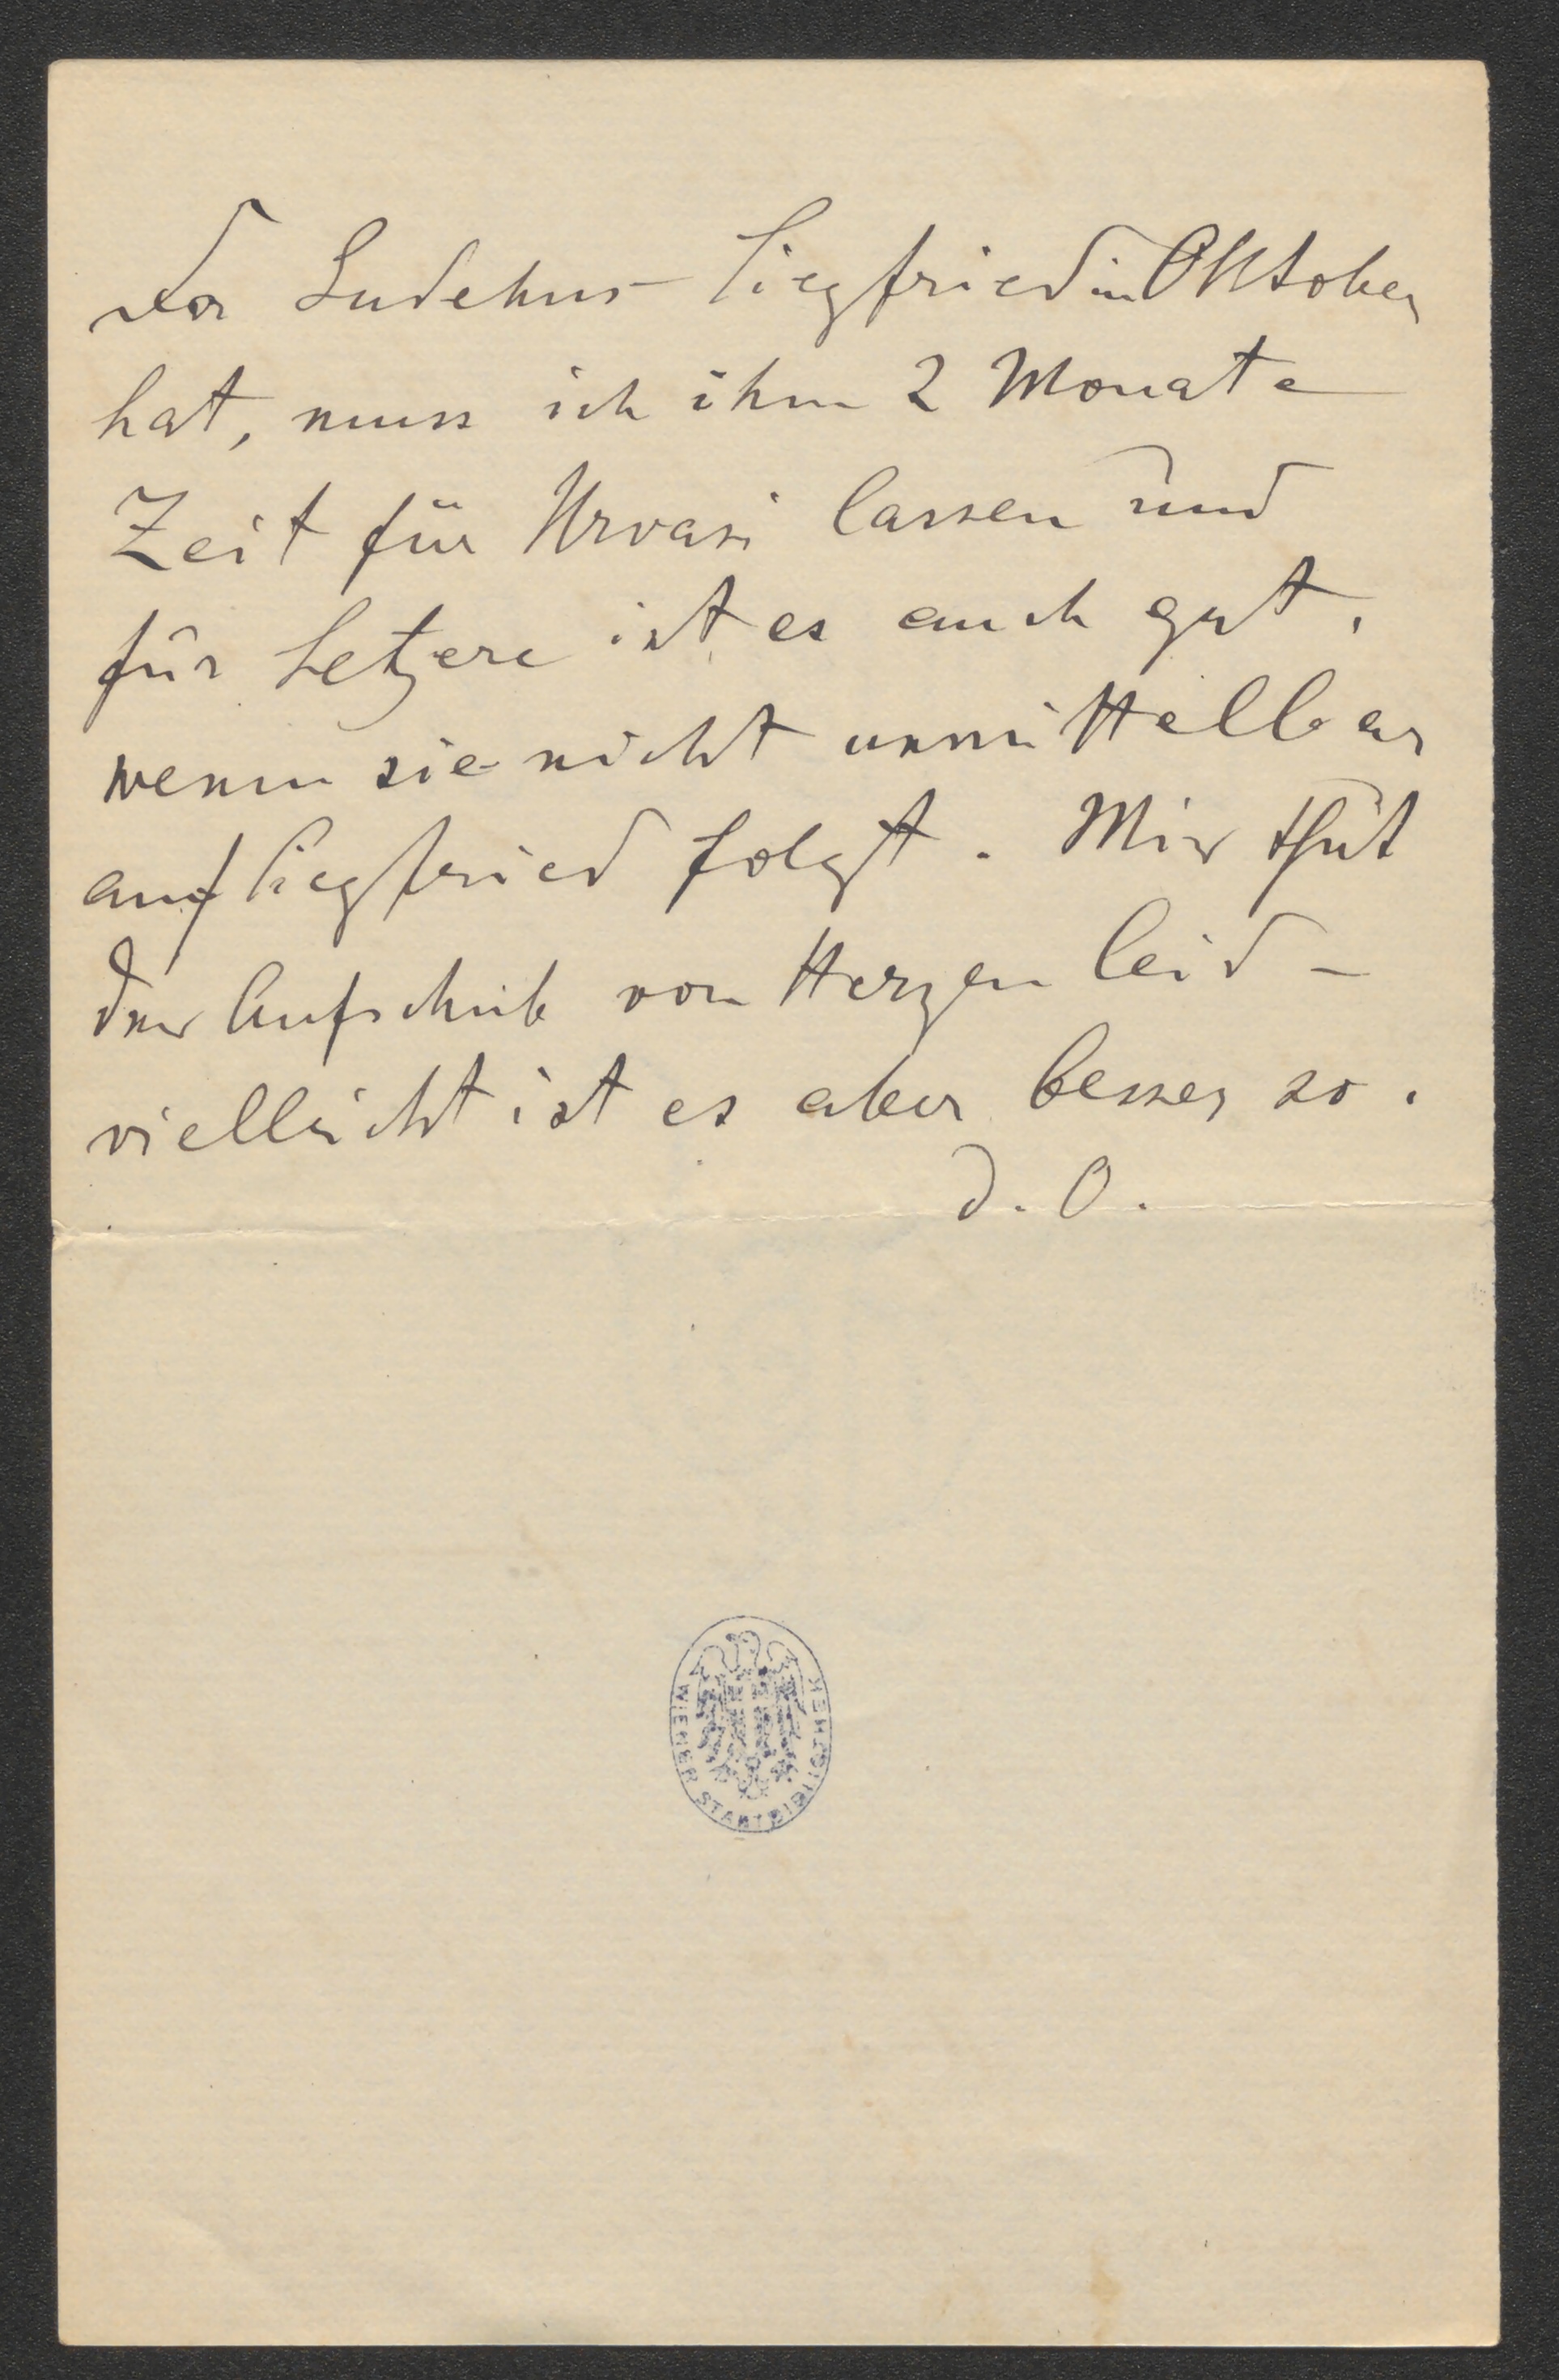 Da Gudehus Siegfried im Oktober
hat, muss ich ihm 2 Monate
Zeit für Urvasi lassen und
für Letzere ist es auch gut,
wenn sie nicht unmittelbar
auf Siegfried folgt. Mir thut
der Aufschub von Herzen leid -
vielleicht ist es aber besser so.
D. O.
WIENER STADTBIBLIOTHEK